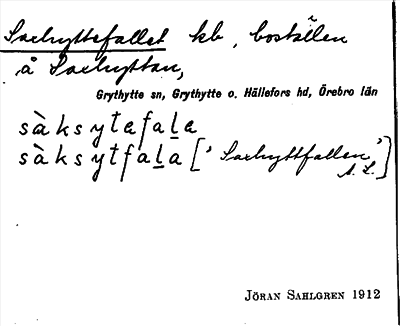 Saxhyttefallet kb, boställen
å Saxhyttan,
Grythytte sn, Grythytte o. Hällefors hd, Örebro län
sàksytafaḻa
sàksytfaḻa ['Saxhyttfallen'
A. L.]
JÖRAN SAHLGREN 1912